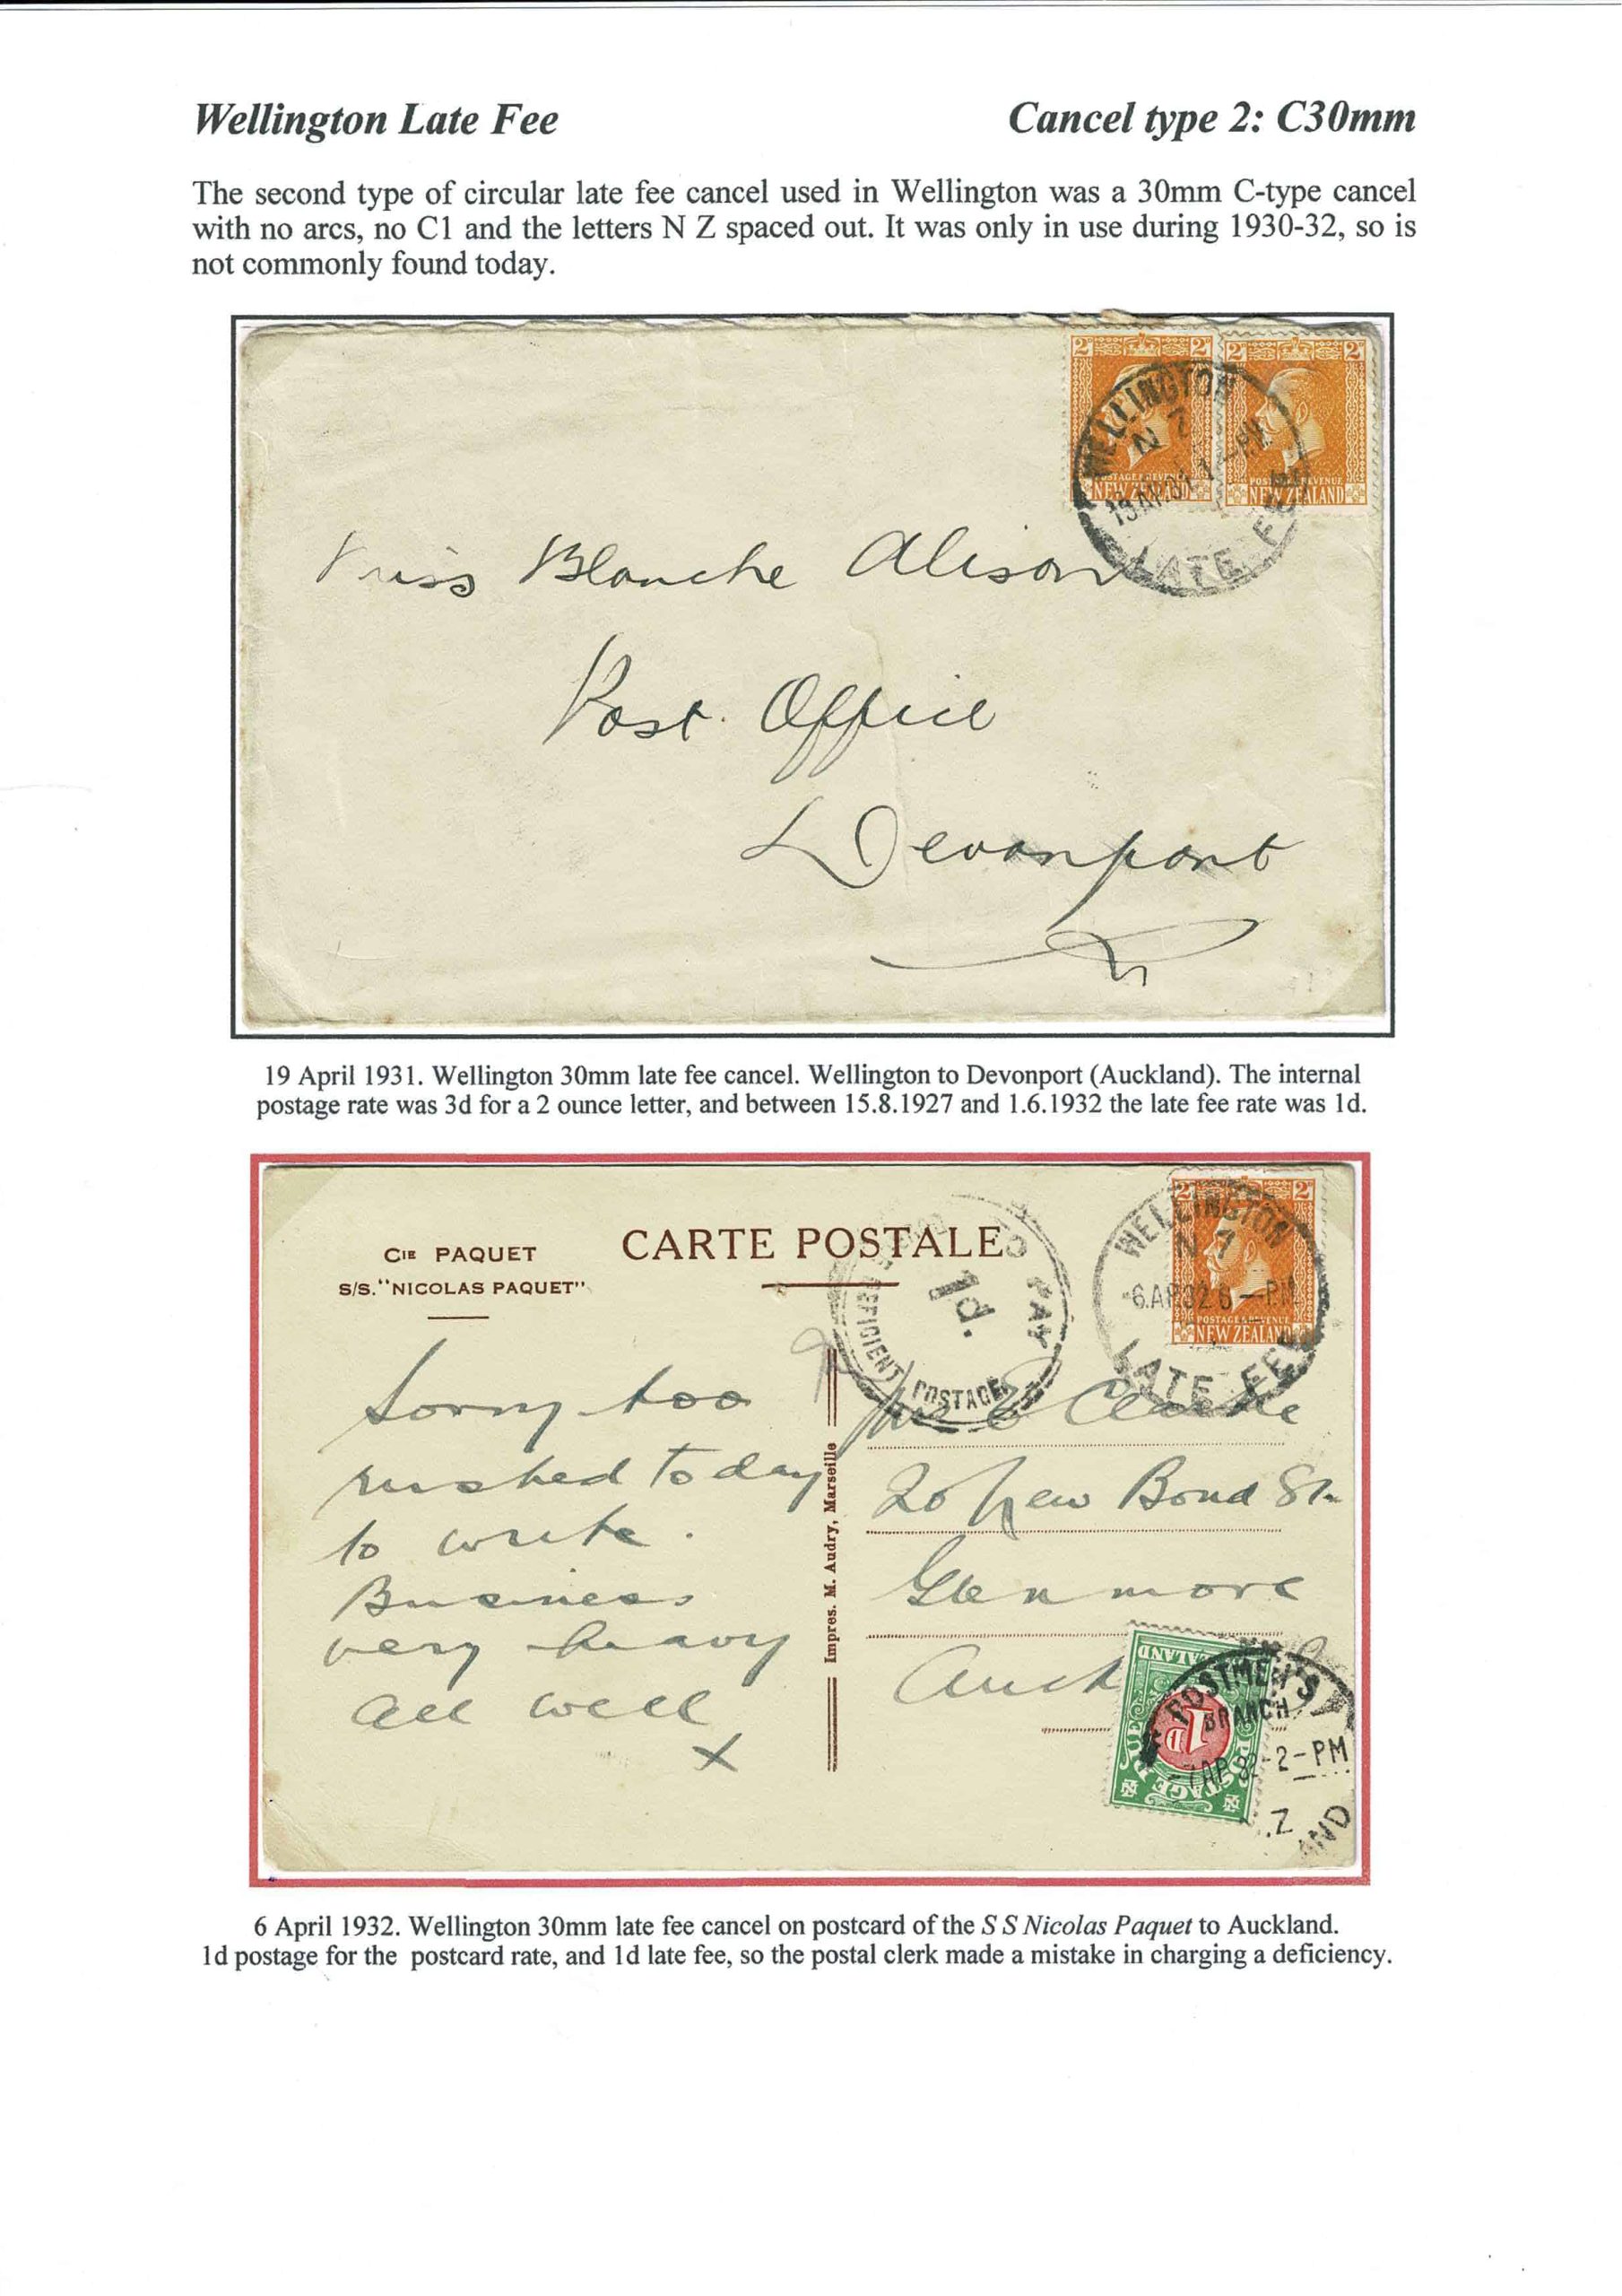 Wellington Late Fee
Cancel type 2: C30mm
The second type of circular late fee cancel used in Wellington was a 30mm C-type cancel
with no arcs, no C1 and the letters N Z spaced out. It was only in use during 1930-32, so is
not commonly found today.
2d 2d 2d 2d
POSTAGE & REVENUE
NEW ZEALAND
POSTAGE & REVENUE
NEW ZEALAND
WELLINGTON
N Z
19 AP.31 1 -PM
LATE FEE
Miss Blanche Alison
Post Office
Devonport
19 April 1931. Wellington 30mm late fee cancel. Wellington to Devonport (Auckland). The internal
postage rate was 3d for a 2 ounce letter, and between 15.8.1927 and 1.6.1932 the late fee rate was 1d.
CIE PAQUET
S/S. "NICOLAS PAQUET"
CARTE POSTALE
TO PAY
1d.
DEFICIENT POSTAGE
2d 2d
POSTAGE & REVENUE
NEW ZEALAND
WELLINGTON
N Z
-6.AP.32 6 -PM
LATE FEE
Sorry too
rushed today
to write.
Business
very heavy
all well
X
Impres. M. Audry, Marseille
E Clarke
20 New Bond St.
Glenmore
Auck
NEW ZEALAND
1D
POSTAGE DUE
POSTMEN'S
BRANCH
-7 AP 32 2-PM
.Z
AND
6 April 1932. Wellington 30mm late fee cancel on postcard of the S S Nicolas Paquet to Auckland.
1d postage for the postcard rate, and 1d late fee, so the postal clerk made a mistake in charging a deficiency.